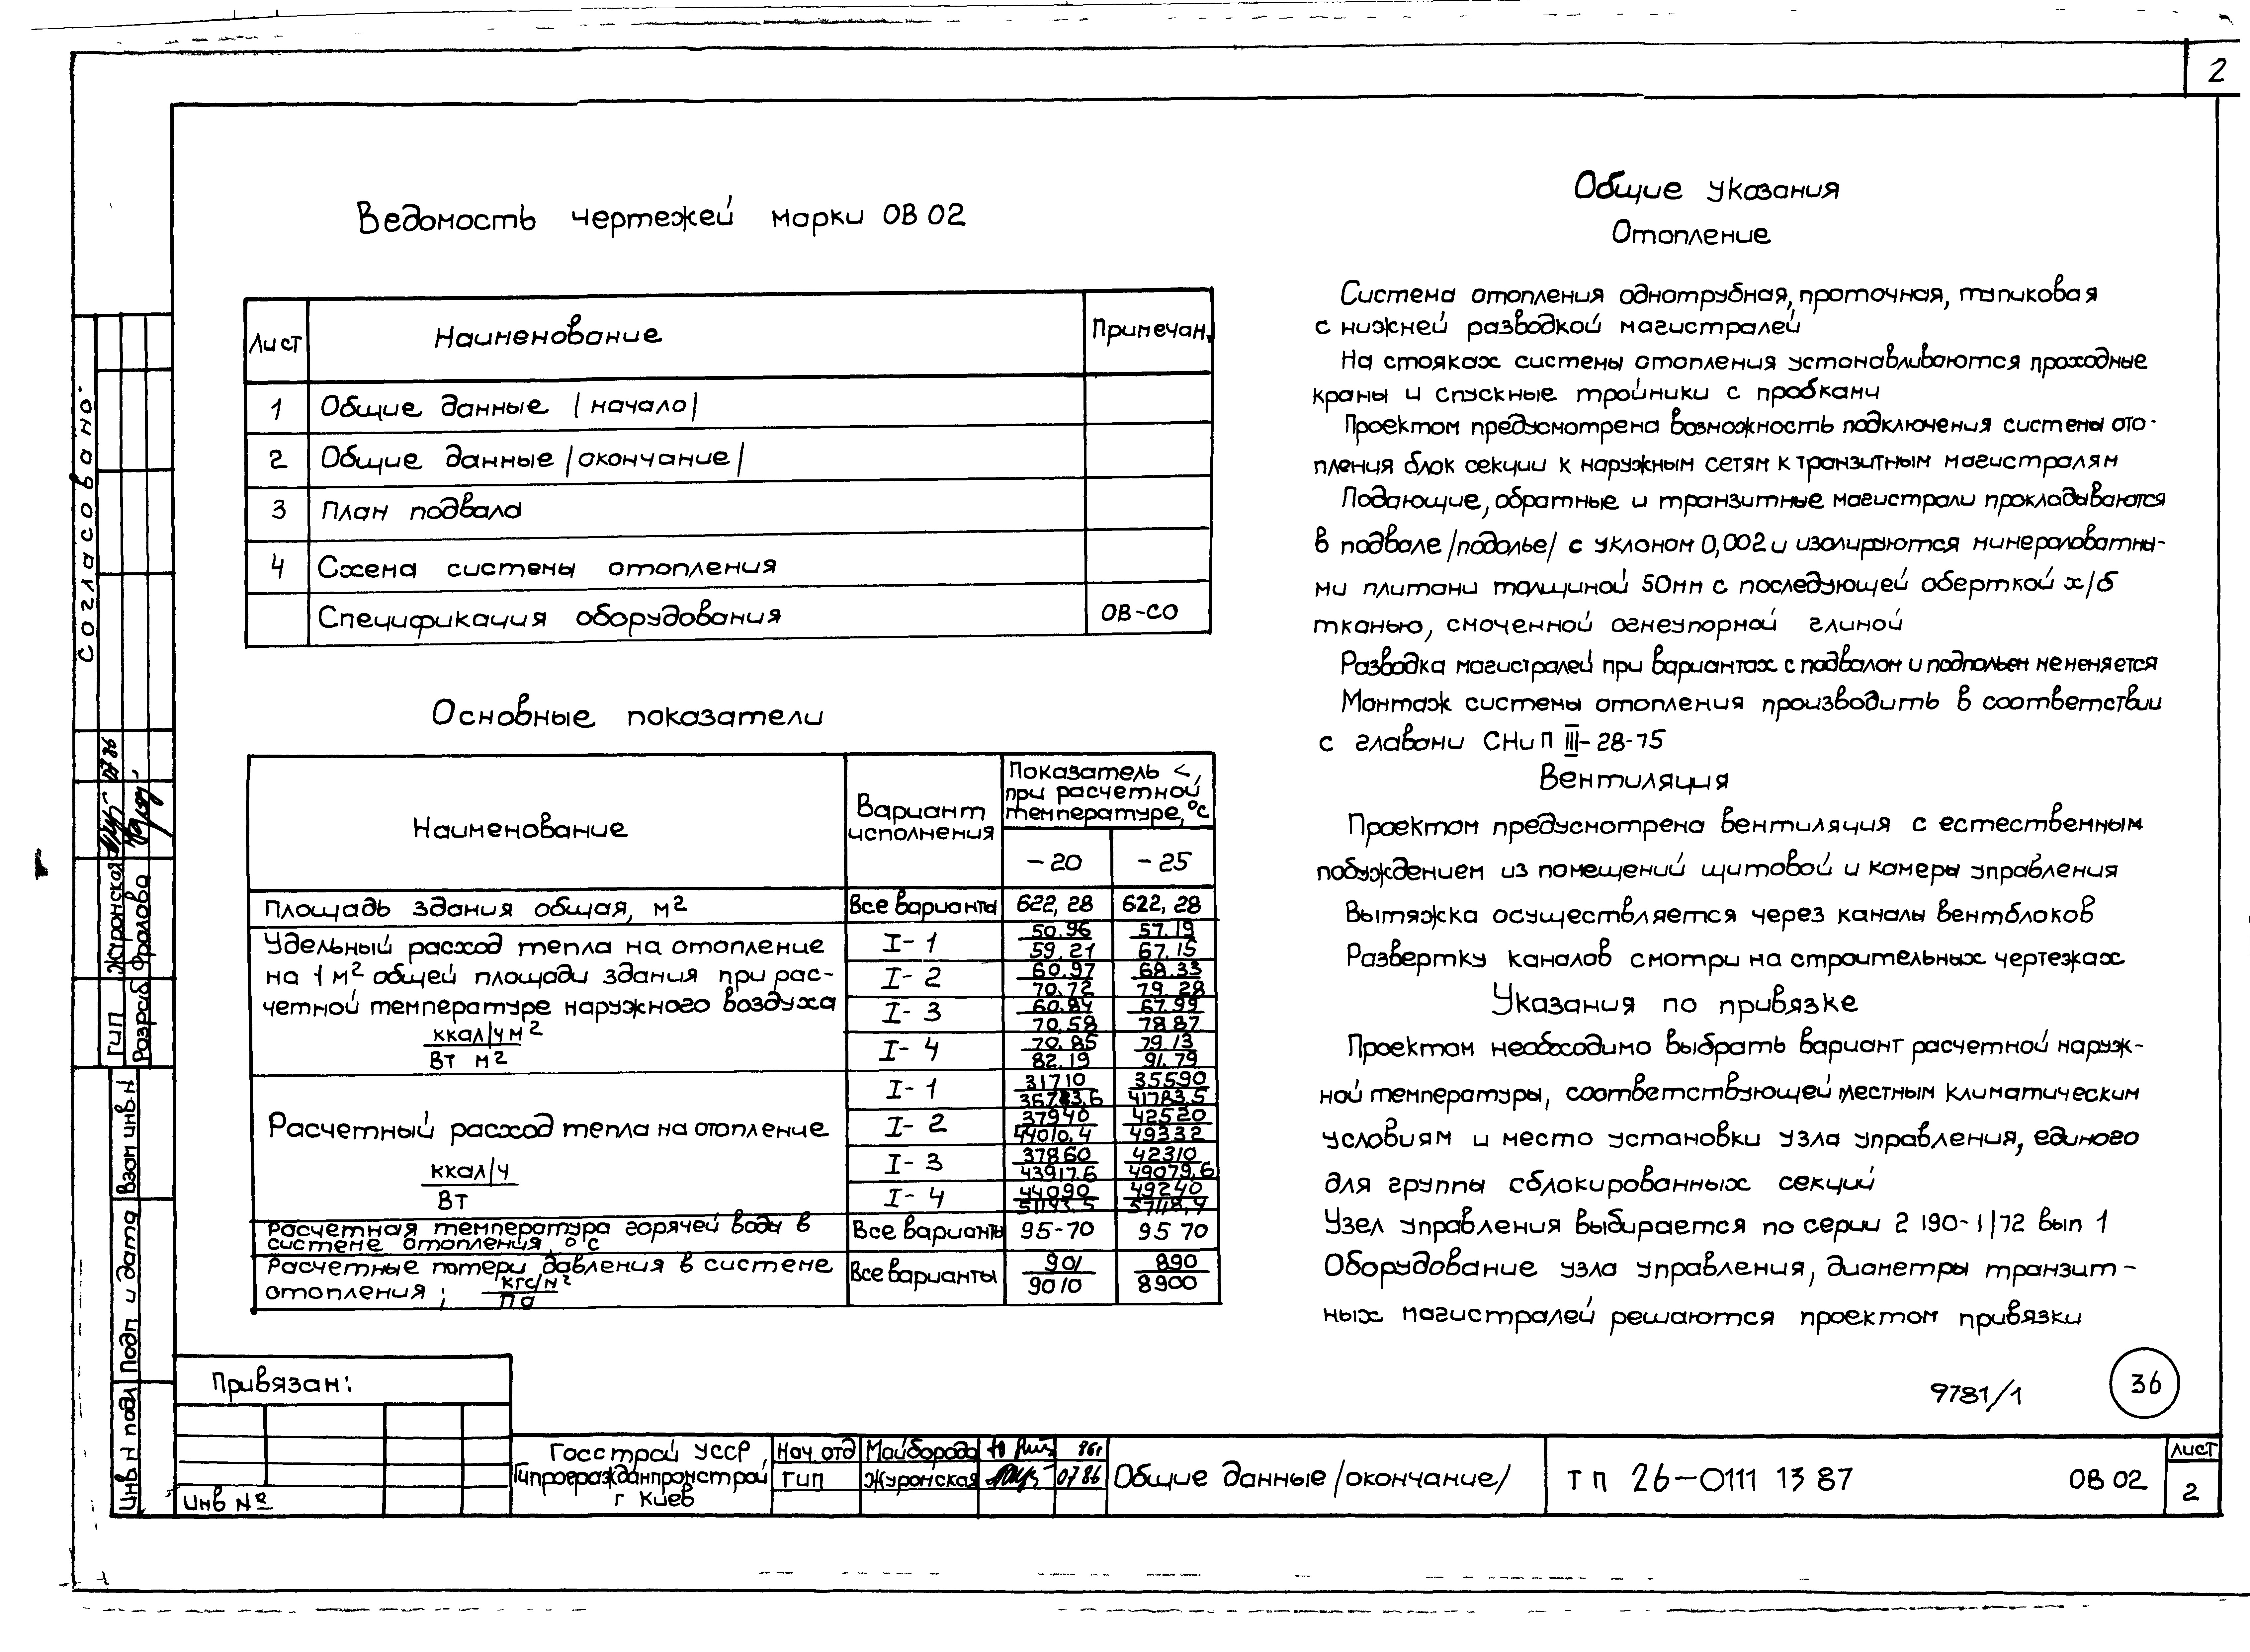 2
Ведомость чертежей марки ОВ 02
Лист Наименование Примечан.
1 Общие данные /начало/
2 Общие данные /окончание/
3 План подвала
4 Схема системы отопления
Спецификация оборудования ОВ-СО
Основные показатели
Наименование
Вариант
исполнения
Показатель <,
при расчетной
температуре, °С
-20 -25
Площадь здания общая, м² Все варианты 622,28 622,28
Удельный расход тепла на отопление
на 1 м² общей площади здания при рас-
четной температуре наружного воздуха
ккал/ч м²
Вт м²
I-1 50.96 57.19
59.21 67.15
I-2 60.97 68.33
70.72 79.28
I-3 60.84 67.99
70.58 78.87
I-4 70.85 79.13
82.19 91.79
Расчетный расход тепла на отопление
ккал/ч
Вт
I-1 31710 35590
36783,6 41783,5
I-2 37940 42520
44010,4 49332
I-3 37860 42310
43917,6 49079,6
I-4 44090 49240
Расчетная температура горячей воды в
системе отопления, °С
Все варианты 95-70 95 70
Расчетные потери давления в системе
отопления; кгс/м²
Па
Все варианты 901 890
9010 8900
Общие указания
Отопление
Система отопления однотрубная, проточная, тупиковая
с нижней разводкой магистралей
На стояках системы отопления устанавливаются проходные
краны и спускные тройники с пробками
Проектом предусмотрена возможность подключения системы ото-
пления блок секции к наружным сетям к транзитным магистралям
Подающие, обратные и транзитные магистрали прокладываются
в подвале /подолье/ с уклоном 0,002 и изолируются минераловатны-
ми плитами толщиной 50мм с последующей оберткой х/б
тканью, смоченной огнеупорной глиной
Разводка магистралей при вариантах с подвалом и подпольем не меняется
Монтаж системы отопления производить в соответствии
с главами СНиП III-28-75
Вентиляция
Проектом предусмотрена вентиляция с естественным
побуждением из помещений щитовой и камеры управления
Вытяжка осуществляется через каналы вентблоков
Развертку каналов смотри на строительных чертежах
Указания по привязке
Проектом необходимо выбрать вариант расчетной наруж-
ной температуры, соответствующей местным климатическим
условиям и место установки узла управления, единого
для группы сблокированных секций
Узел управления выбирается по серии 2 190-1/72 вып 1
Оборудование узла управления, диаметры транзит-
ных магистралей решаются проектом привязки
9781/1
36
Согласовано.
ГИП Журонская 07 86
Разраб Фролова
Инв N подл Подп и дата Взам инв. N
Привязан:
Инв №
Госстрой УССР
Гипрогражданпромстрой
г Киев
Нач. отд Майборода 86г
ГИП Журонская 07 86
Общие данные /окончание/
ТП 26-0111 13 87
ОВ 02
Лист
2